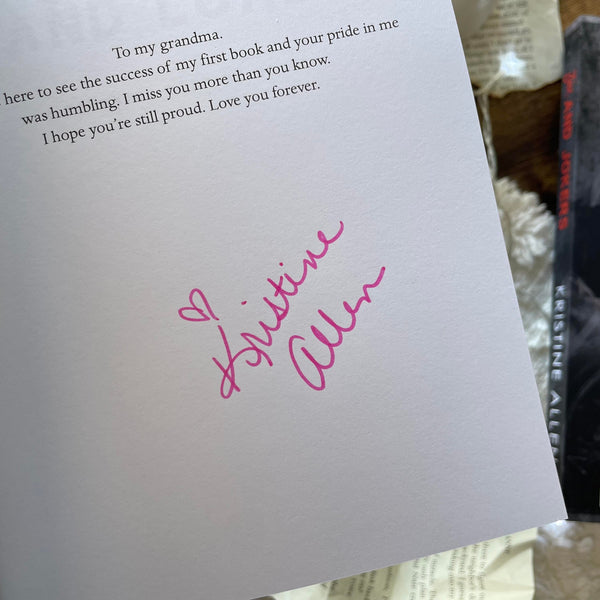 To my grandma.
here to see the success of my first book and your pride in me
was humbling. I miss you more than you know.
I hope you're still proud. Love you forever.
Kristine
Allen
AND JOKERS
KRISTINE ALLEN